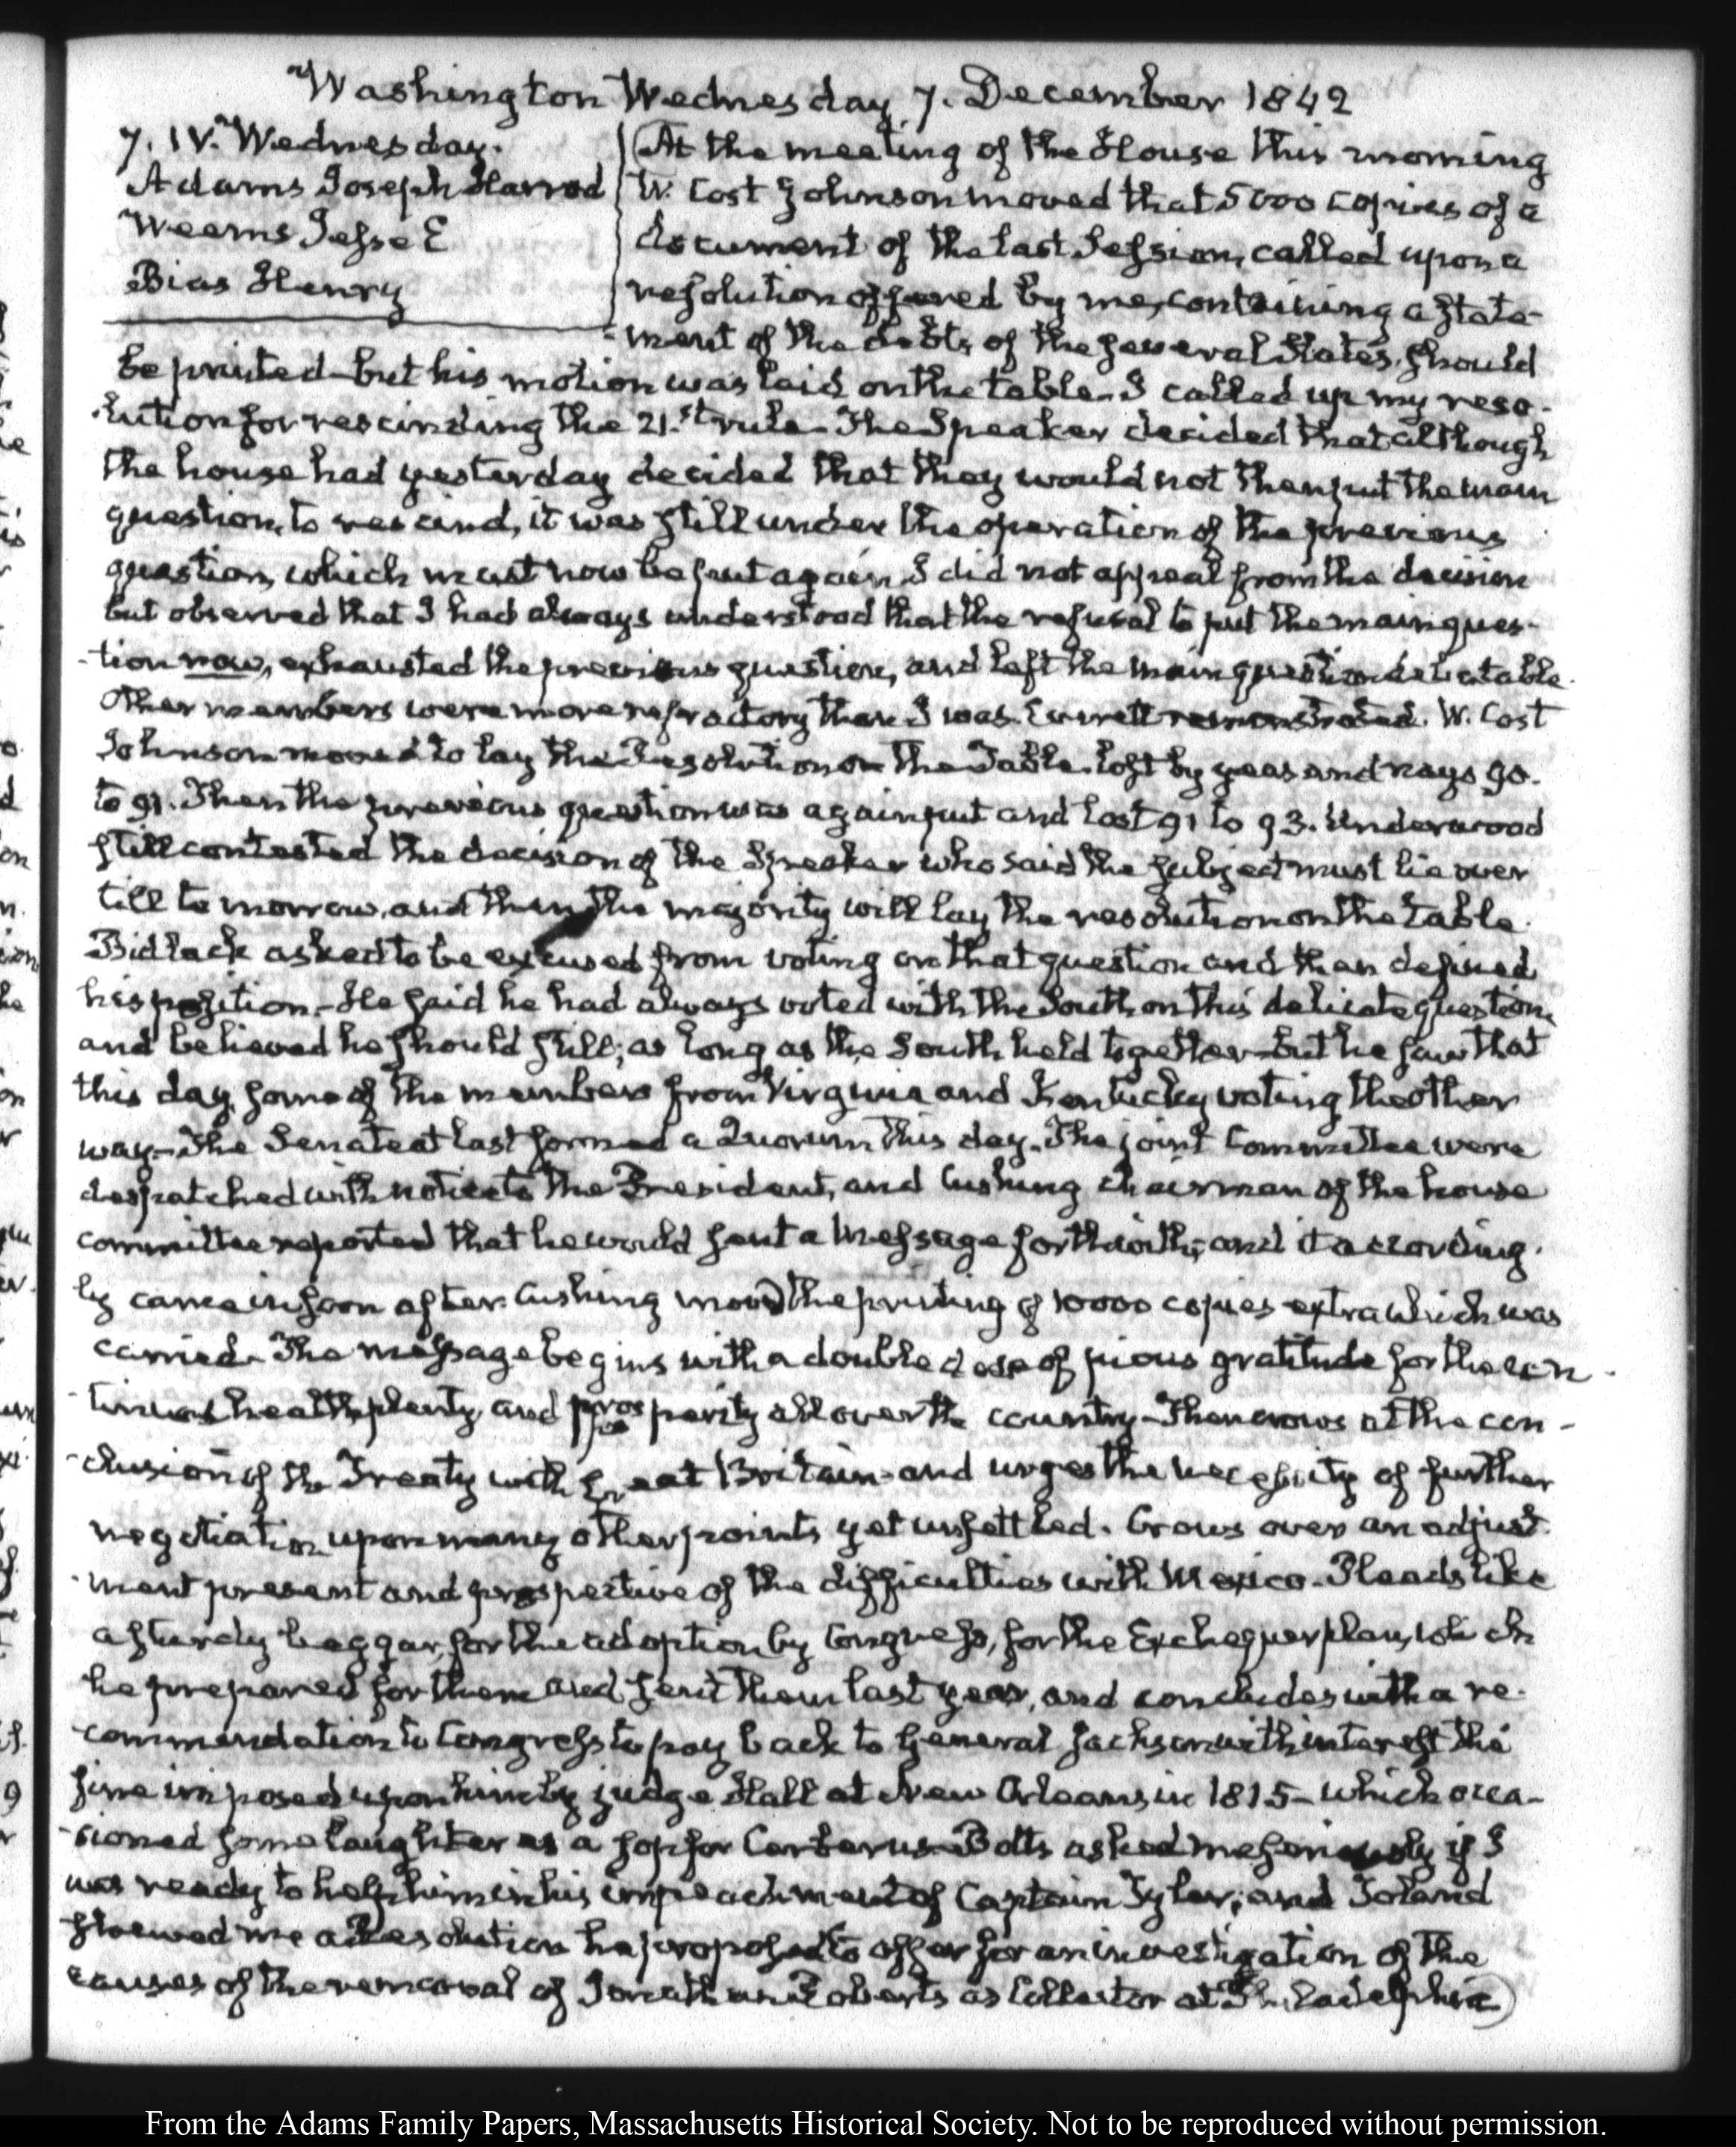 Washington Wednesday 7. December 1842
7. IV. Wednesday.
Adams Joseph Harrod
Weems Jesse E
Bias Henry
At the meeting of the House this morning
W. Cost Johnson moved that 5000 copies of a
document of the last Session, called upon a
resolution offered by me, containing a state-
-ment of the debts of the several States, should
be printed—but his motion was laid on the table. I called up my reso-
-lution for rescinding the 21.st rule. The Speaker decided that although
the house had yesterday decided that they would not then put the main
question, to rescind, it was still under the operation of the previous
question, which must now be put again. I did not appeal from the decision
but observed that I had always understood that the refusal to put the main ques-
-tion now, exhausted the previous question, and left the main question debatable.
Other members were more refractory than I was. Everett remonstrated. W. Cost
Johnson moved to lay the Resolution on the Table. lost by yeas and nays 90.
to 91. Then the previous question was again put and lost 91 to 93. Underwood
still contested the decision of the Speaker who said the subject must lie over
till to morrow, and then the majority will lay the resolution on the table.
Bidlack asked to be excused from voting on that question and then defined
his position.—He said he had always voted with the South on this delicate question,
and believed he should still; as long as the South held together—but he saw that
this day some of the members from Virginia and Kentucky voting the other
way—The Senate at last formed a Quorum this day. The joint Committee were
despatched with notice to the President, and Cushing chairman of the house
committee reported that he would sent a Message forthwith; and it according-
ly came in soon after. Cushing moved the printing of 10000 copies extra which was
carried. The message begins with a double dose of pious gratitude for the con-
-tinual health, plenty, and prosperity all over the country—Then crows at the con-
-clusion of the Treaty with Great Britain—and urges the necessity of further
negotiation upon many other points yet unsettled. Crows over an adjust-
-ment present and prospective of the difficulties with Mexico—Pleads like
a sturdy beggar, for the adoption by Congress, for the Exchequer plan, which
he prepared for them and sent them last year, and concludes with a re-
-commendation to Congress to pay back to General Jackson with interest the
fine imposed upon him by judge Hall at New Orleans in 1815—which occa-
-sioned some laughter as a sop for Cerberus—Botts asked me seriously if I
was ready to help him in his impeachment of Captain Tyler; and Toland
shewed me a Resolution he proposed to offer for an investigation of the
causes of the removal of Jonathan Roberts as Collector at Philadelphia)
From the Adams Family Papers, Massachusetts Historical Society. Not to be reproduced without permission.